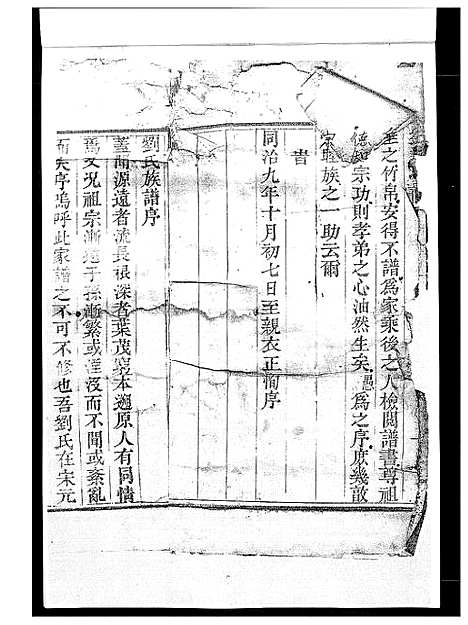 垂之竹帛安得不譜爲家乘後之人檢閱譜書尊祖
德宗功則孝弟之心油然生矣愚爲之序庶幾敦
宗睦族之一助云爾
旹
同治九年十月初七日至親衣正恂序
劉氏族譜序
蓋聞源遠者流長根深者葉茂窮本遡原人有同情
焉又况祖宗漸遠子孫漸繁或湮沒而不聞或紊亂
而失序嗚呼此家譜之不可不修也吾劉氏在宋元